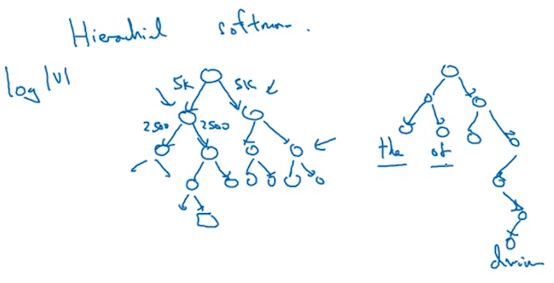 Hierarchial softmax.
log |V|
5K 5K
2500 2500
the of